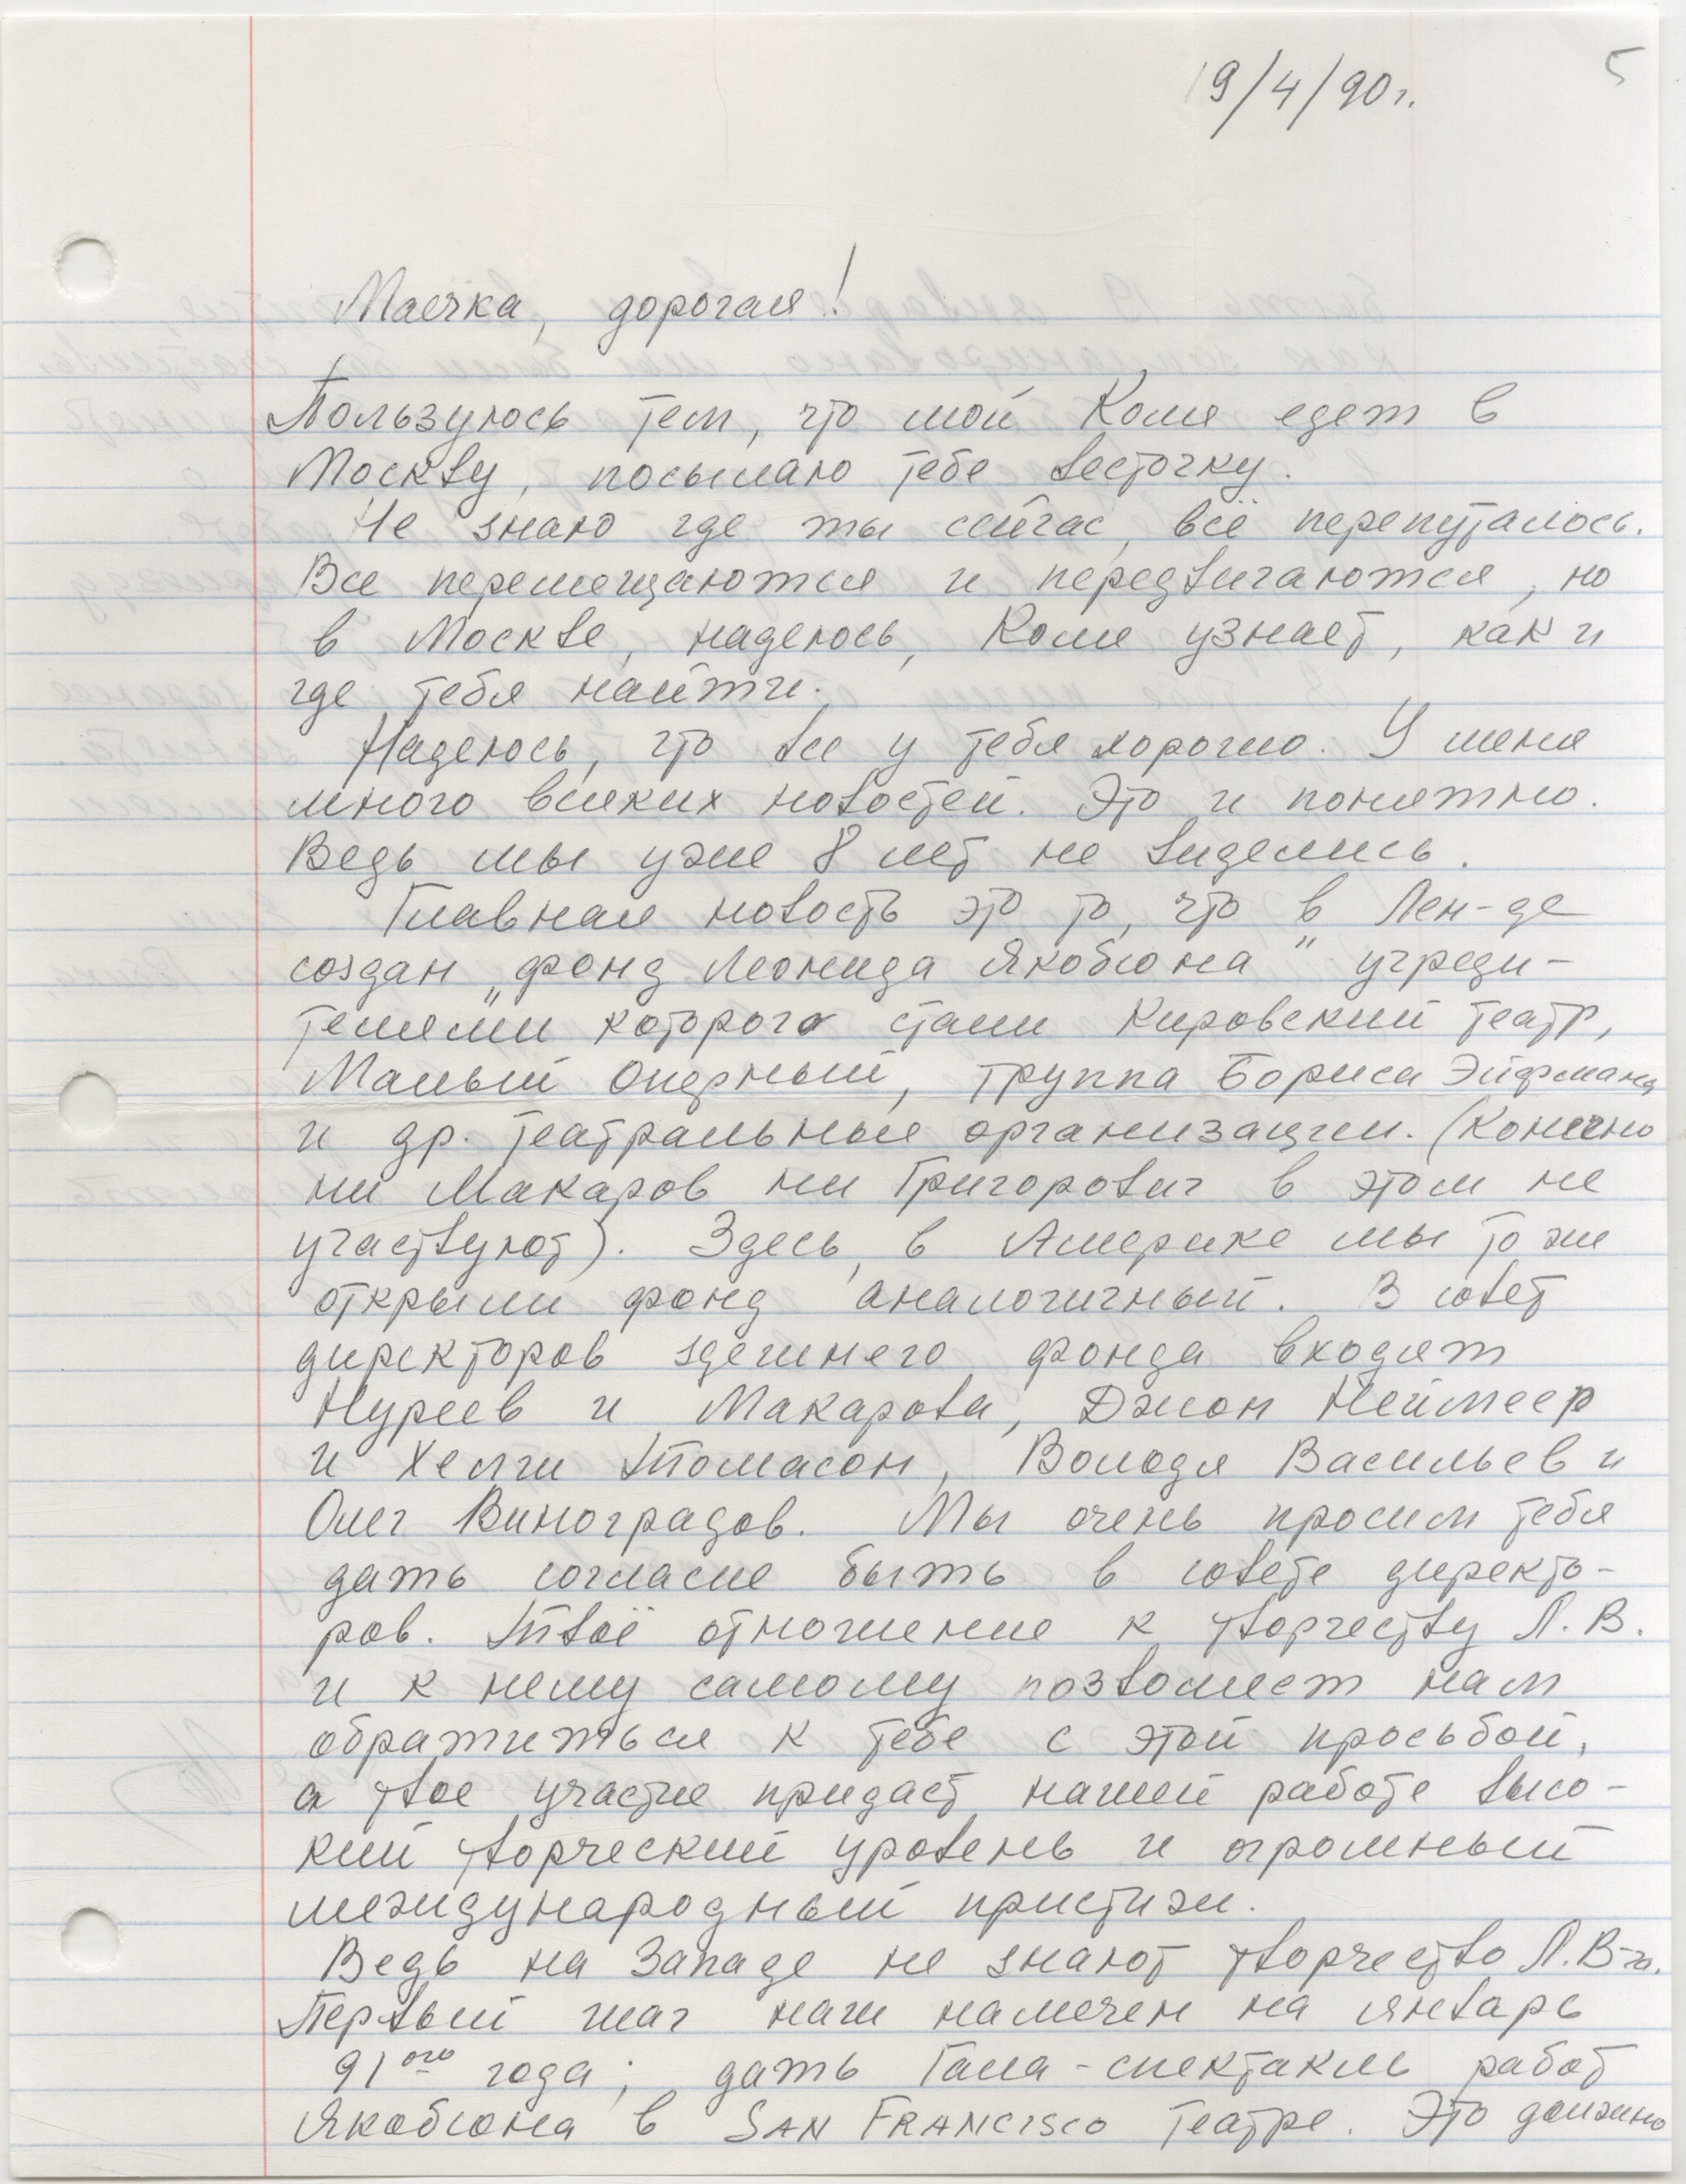 5
19/4/90 г.
Маечка, дорогая!
Пользуюсь тем, что мой Коля едет в
Москву, посылаю тебе весточку.
Не знаю где ты сейчас, всё перепуталось.
Все перемещаются и передвигаются, но
в Москве, надеюсь, Коля узнает, как и
где тебя найти.
Надеюсь, что все у тебя хорошо. У меня
много всяких новостей. Это и понятно.
Ведь мы уже 8 лет не виделись.
Главная новость это то, что в Лен-де
создан „фонд Леонида Якобсона" учреди-
телями которого стали Кировский театр,
Малый Оперный, труппа Бориса Эйфмана
и др. театральные организации. (Конечно
ни Макаров ни Григорович в этом не
участвуют). Здесь, в Америке мы то же
открыли фонд аналогичный. В совет
директоров здешнего фонда входят
Нуреев и Макарова, Джон Неймеер
и Хелги Томасон, Володя Васильев и
Олег Виноградов. Мы очень просим тебя
дать согласие быть в совете директо-
ров. Твоё отношение к творчеству Л.В.
и к нему самому позволяет нам
обратиться к тебе с этой просьбой,
а твое участие придаст нашей работе высо-
кий творческий уровень и огромный
международный пристиж.
Ведь на Западе не знают творчество Л.В-ча.
Первый шаг наш намечен на январь
91ого года; дать Гала-спектакль работ
Якобсона в SAN FRANCISCO театре. Это должно